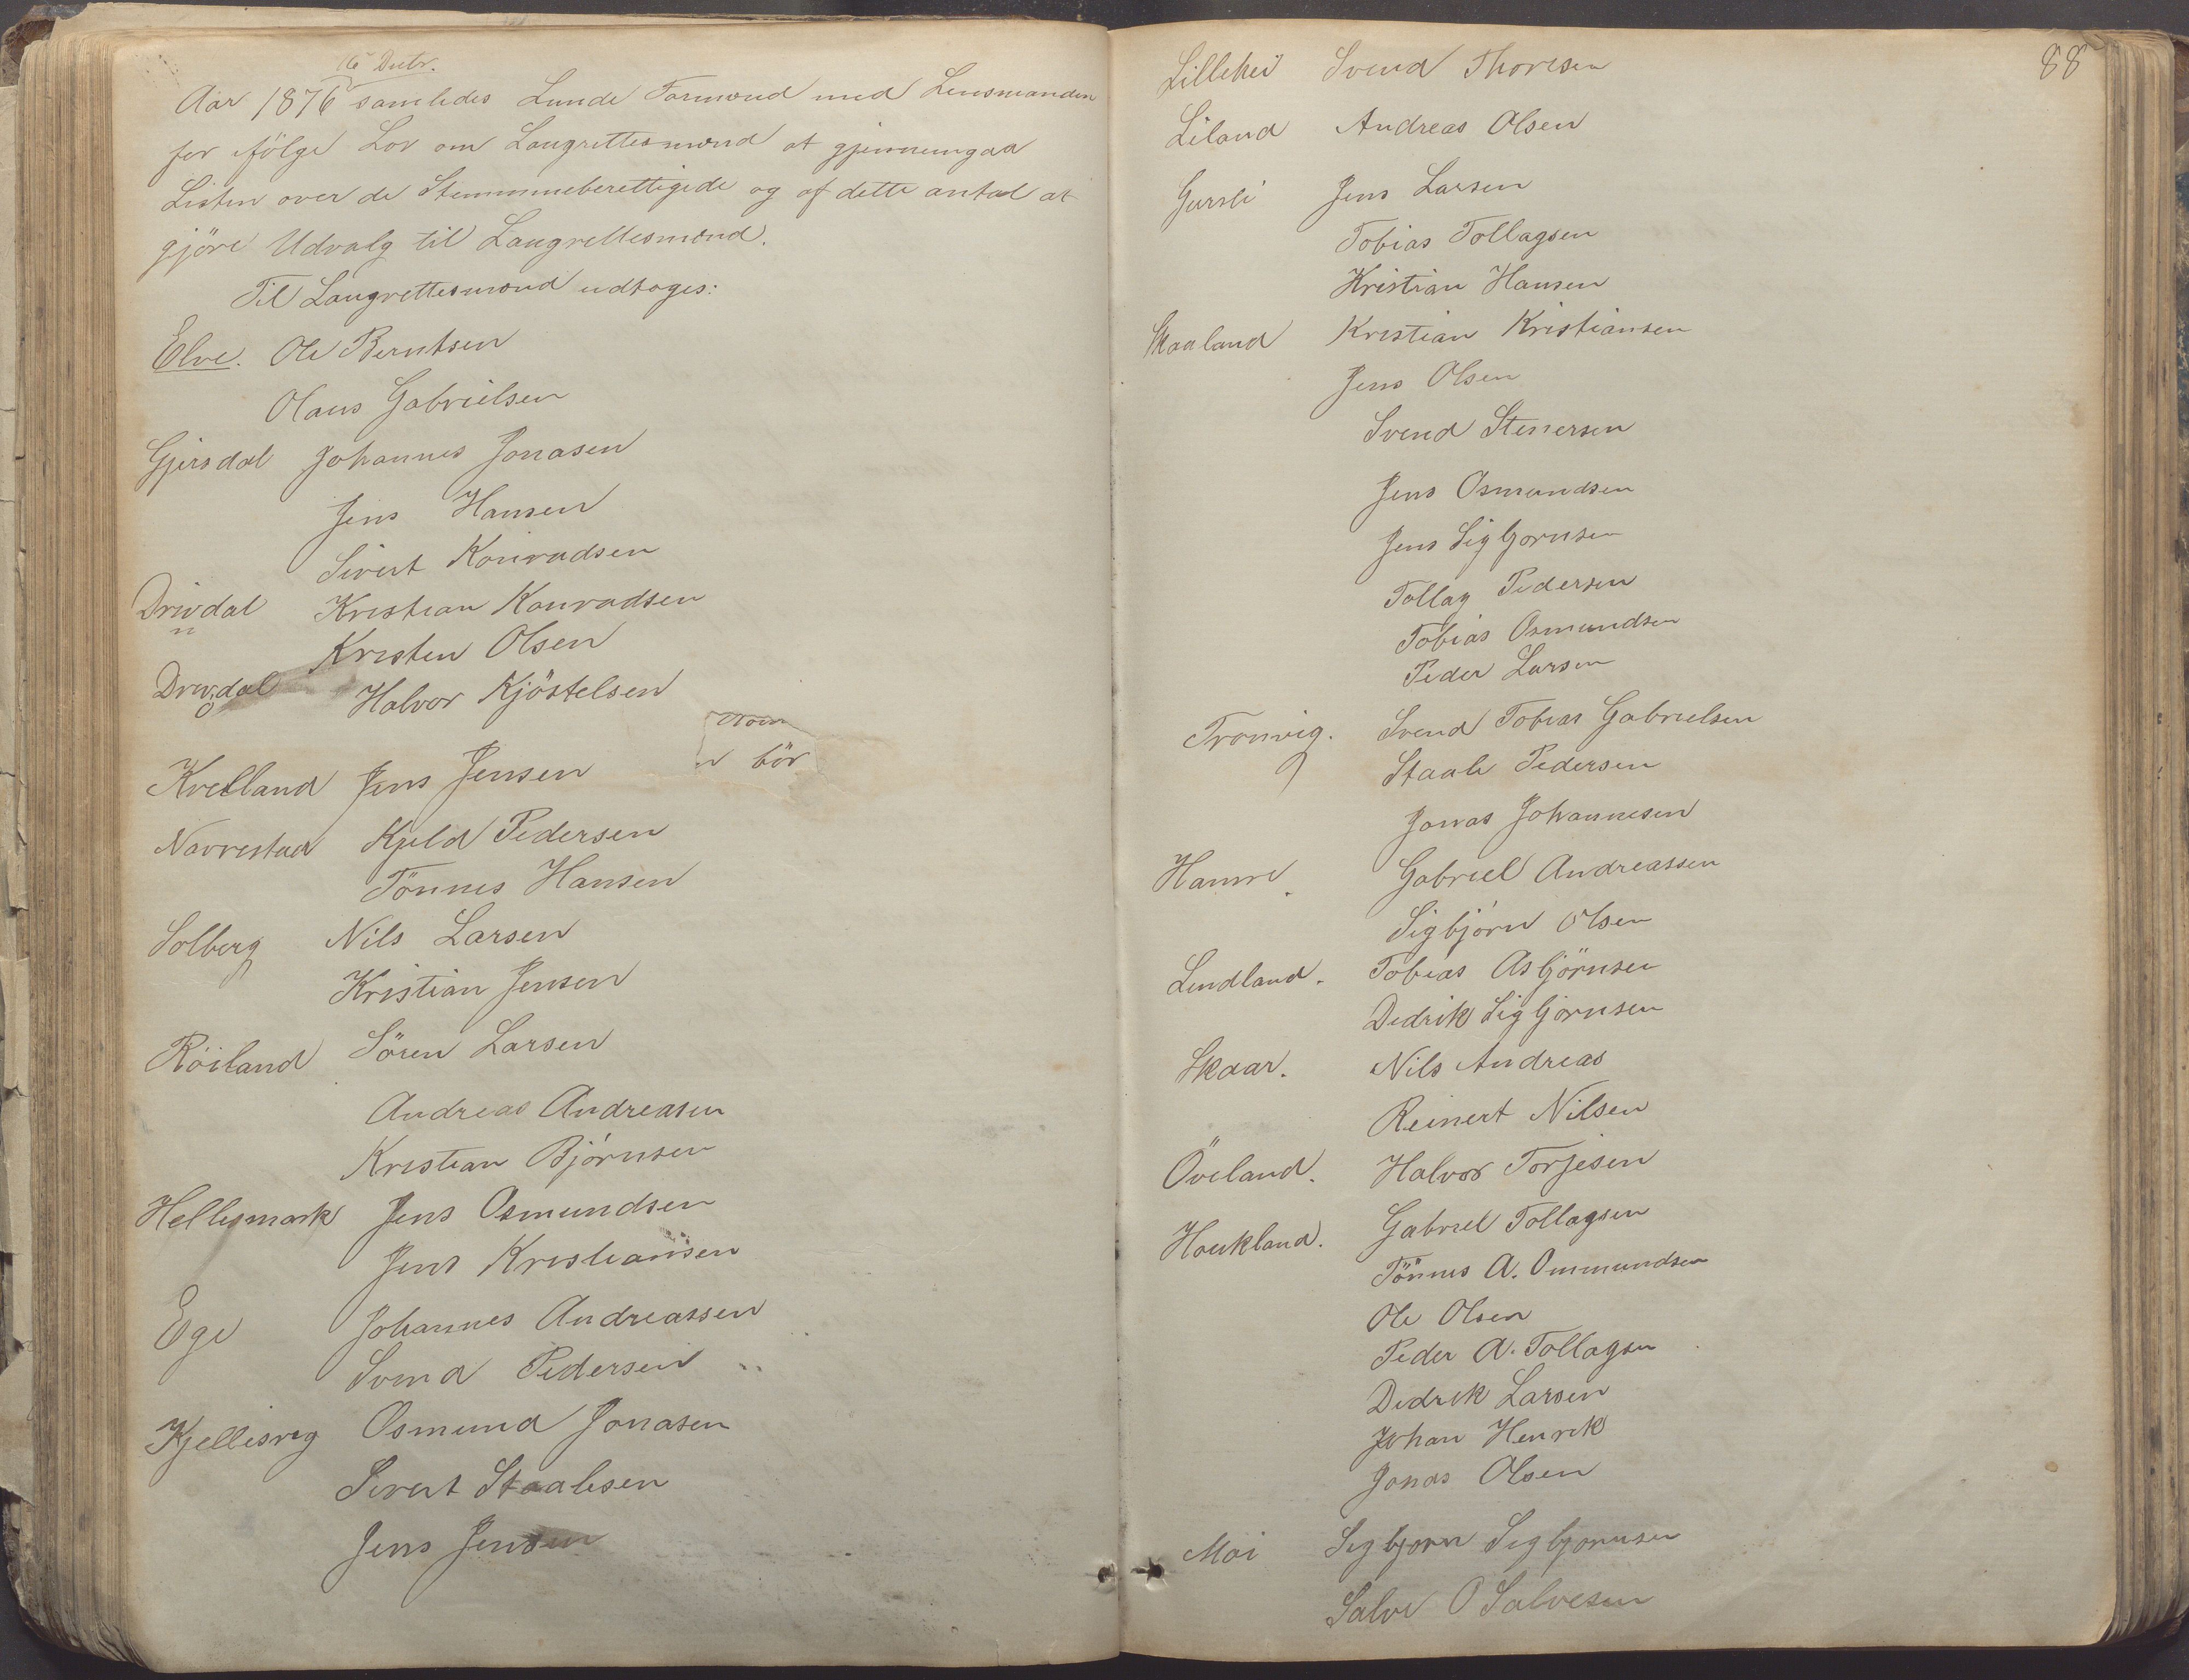 16 Debr.
Aar 1876 samledes Lunde Formænd med Lensmanden
for ifölge Lov om Laugrettesmænd at gjennemgaa
Listen over de Stemmmeberettigede og af dette antal at
gjöre Udvalg til Laugrettesmænd.
Til Laugrettesmænd udtoges:
Elve. Ole Berntsen
Olaus Gabrielsen
Gjersdal Johannes Jonasen
Jens Hansen
Sivert Konradsen
Drivdal Kristian Konradsen
" Kristen Olsen
Drivdal Halvor Kjöstelsen
bör
Kvelland Jens Jensen
Navrestad Kjeld Pedersen
Tönnes Hansen
Solberg Nils Larsen
Kristian Jensen
Röiland Sören Larsen
Andreas Andreasen
Kristian Björnsen
Hellesmark Jens Osmundsen
Jens Kristiansen
Ege Johannes Andreassen
Svend Pedersen
Kjellesvig Osmund Jonasen
Sivert Staalesen
Jens Jensen
88
Lillehei Svend Thoresen
Liland Andreas Olsen
Gursli Jens Larsen
Tobias Tollagsen
Kristian Hansen
Skaaland Kristian Kristiansen
Jens Olsen
Svend Stenersen
Jens Osmundsen
Jens Sigbjornsen
Tollag Pedersen
Tobias Osmundsen
Peder Larsen
Tronvig. Svend Tobias Gabrielsen
Staale Pedersen
Jonas Johannesen
Hamre Gabriel Andreassen
Sigbjörn Olsen
Lindland. Tobias Asbjörnsen
Dedrik Sigbjörnsen
Skaar. Nils Andreas
Reinert Nilsen
Öveland. Halvor Torjesen
Houkland. Gabriel Tollagsen
Tönnes A. Ommundsen
Ole Olsen
Peder A. Tollagsen
Dedrik Larsen
Johan Henrik
Jonas Olsen
Moi Sigbjorn Sigbjornsen
Salve O Salvesen